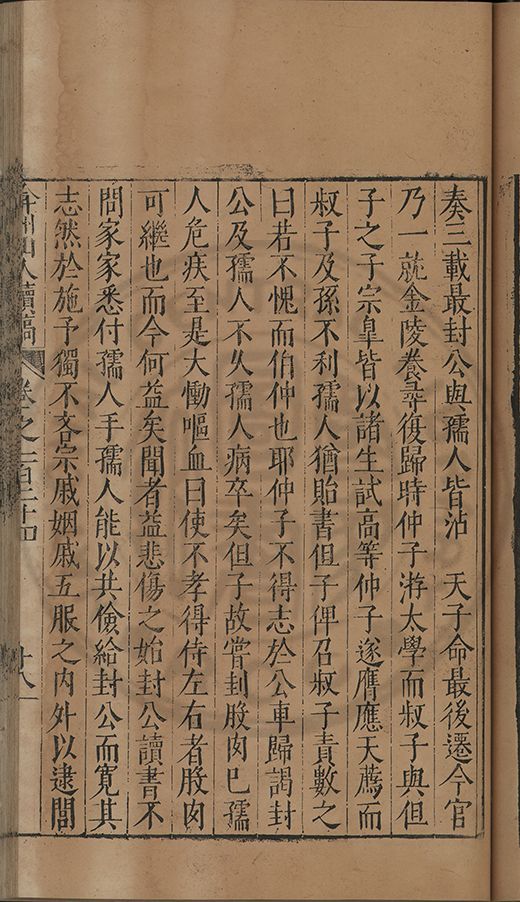 奏三載最封公與孺人皆沾　天子命最後遷今官
乃一就金陵養尋復歸時仲子游太學而叔子與但
子之子宗皐皆以諸生試高等仲子遂膺應天薦而
叔子及孫不利孺人猶貽書但子俾召叔子責數之
曰若不愧而伯仲也耶仲子不得志於公車歸謁封
公及孺人不乆孺人病卒矣但子故嘗刲股肉已孺
人危疾至是大慟嘔血曰使不孝得侍左右者股肉
可繼也而今何益矣聞者益悲傷之始封公讀書不
問家家悉付孺人手孺人能以共儉給封公而寛其
志然於施予獨不吝宗戚姻戚五服之内外以逮閭
弇州山人續稿 卷之一百二十四 十八